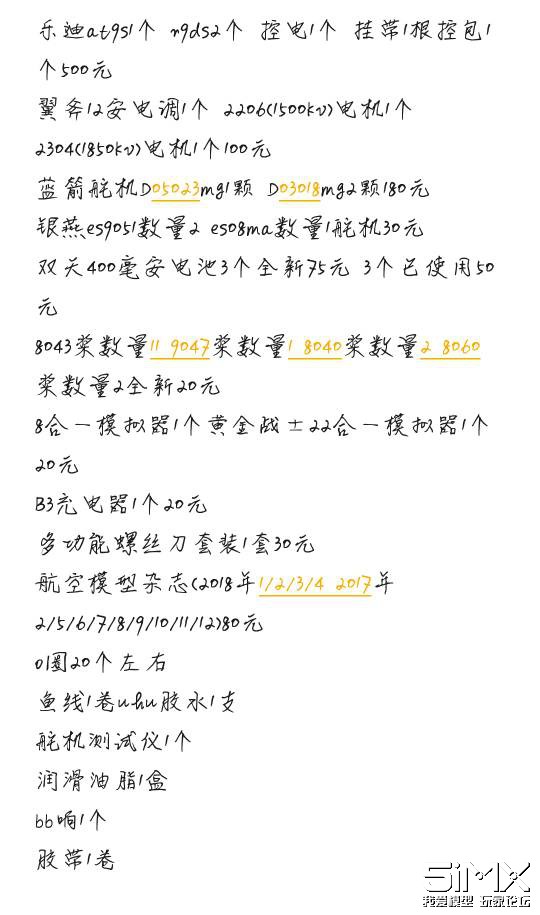 乐迪at9s1个 r9ds2个 控电1个 挂带1根控包1
个500元
翼斧12安电调1个 2206(1500kv)电机1个
2304(1850kv)电机1个100元
蓝箭舵机D05023mg1颗 D03018mg2颗180元
银燕es9051数量2 es08ma数量1舵机30元
双天400毫安电池3个全新75元 3个已使用50
元
8043桨数量11 9047桨数量1 8040桨数量2 8060
桨数量2全新20元
8合一模拟器1个黄金战士22合一模拟器1个
20元
B3充电器1个20元
多功能螺丝刀套装1套30元
航空模型杂志(2018年1/2/3/4 2017年
2/5/6/7/8/9/10/11/12)80元
o1圈20个左右
鱼线1卷uhu胶水1支
舵机测试仪1个
润滑油脂1盒
bb响1个
胶带1卷
5iMX
我爱模型 玩家论坛